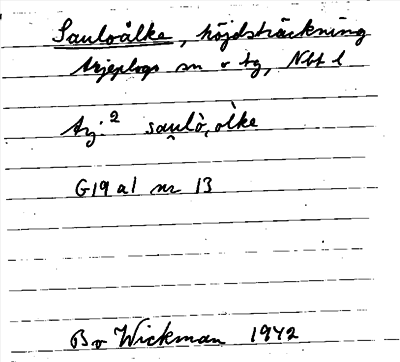 Sauloålke, höjdsträckning
Arjeplogs sn o tg, Nbt l
Aj:² sau̯lò,òlke
G19 a1 nr 13
Bo Wickman 1942